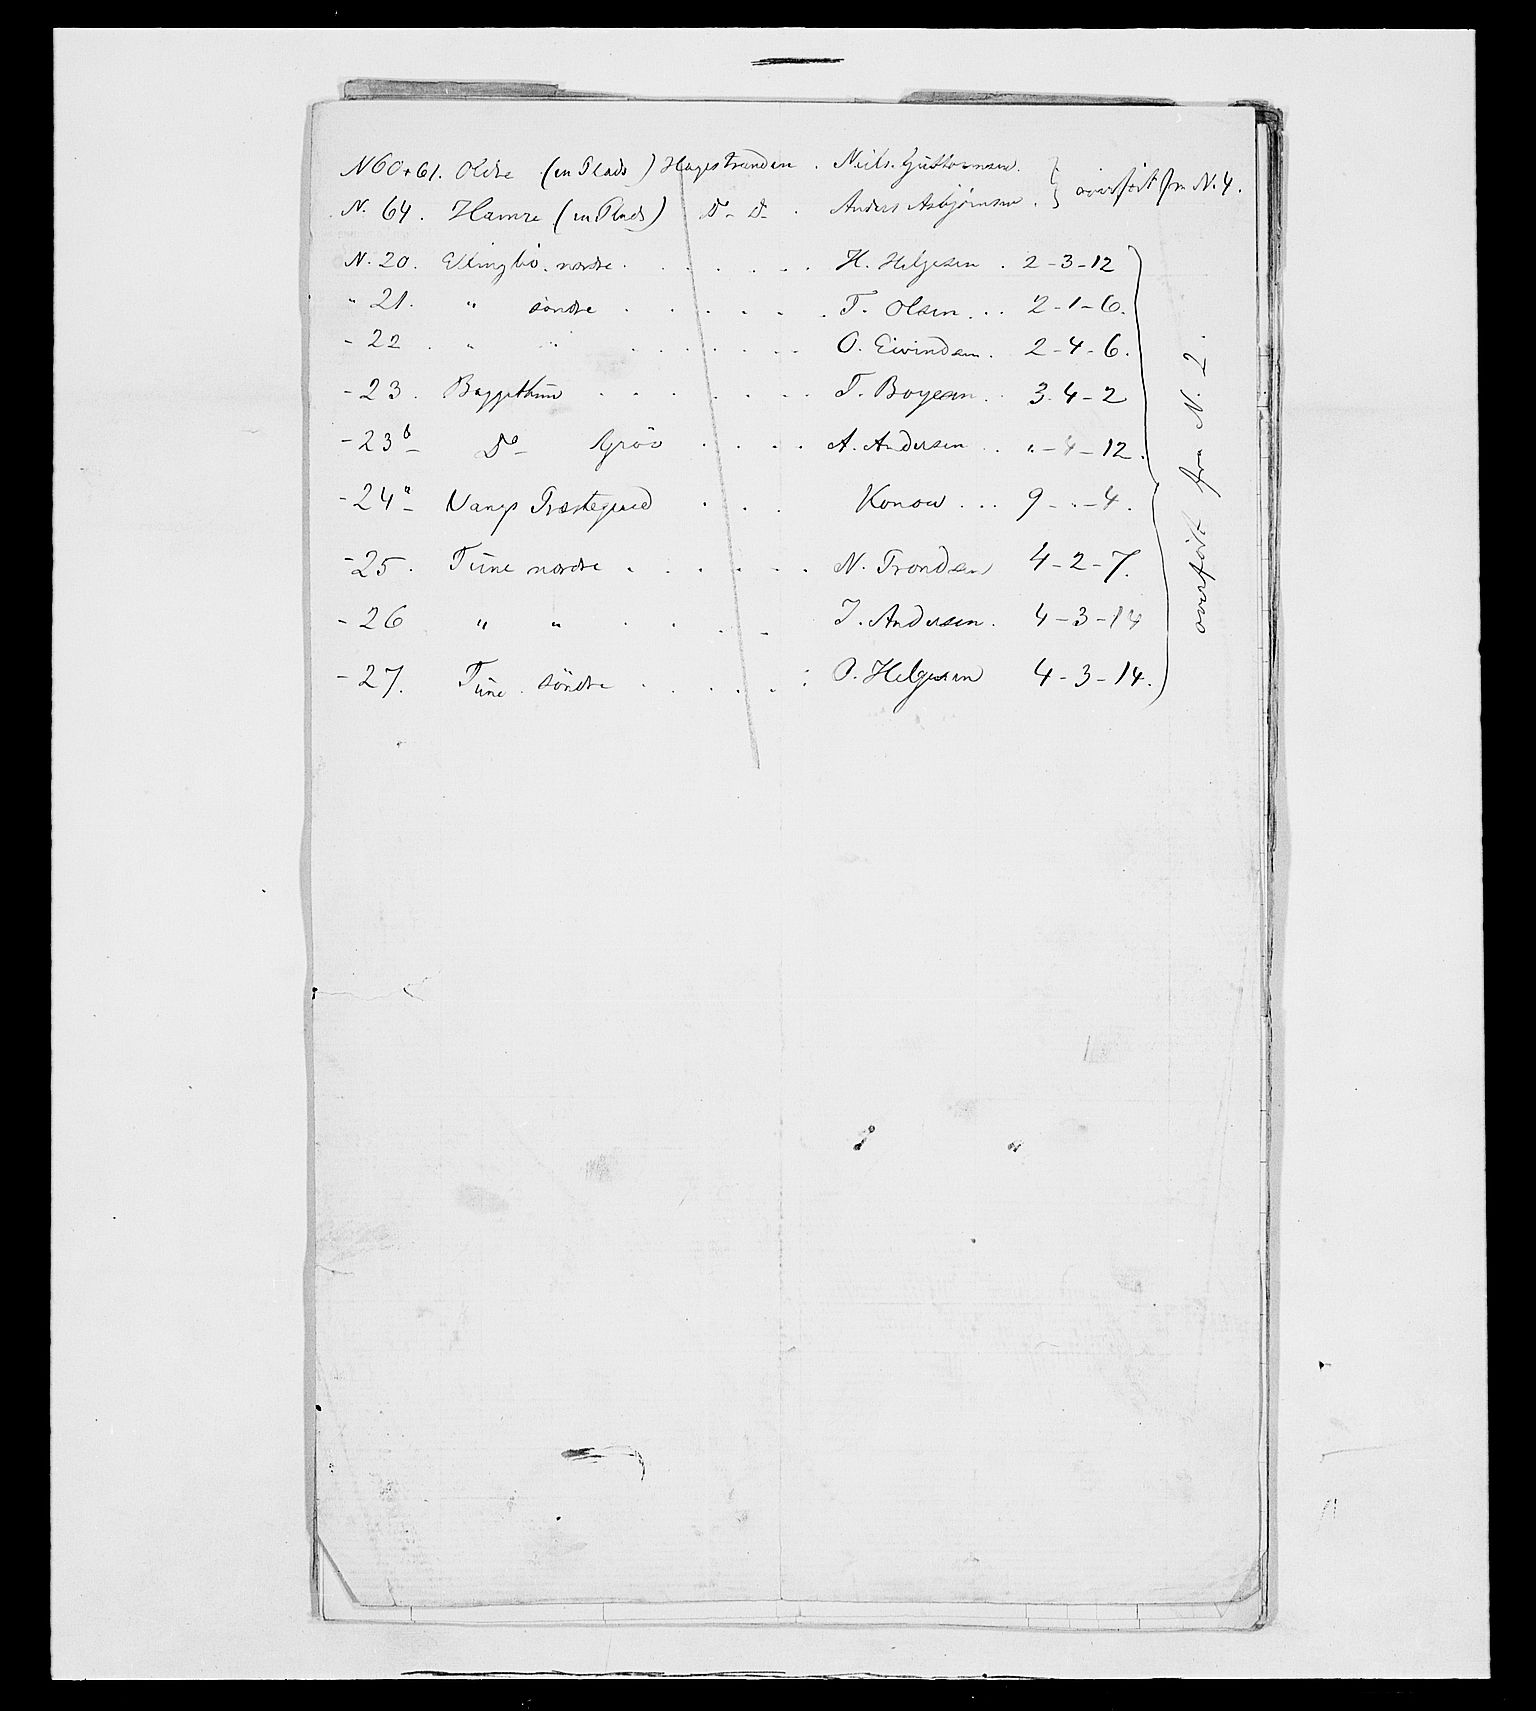 N 60 + 61. Oldre (en Plads) Hagestranden . Niels Guttormsen.
N. 64. Hamre (en Plads) Do Do . Anders Asbjørnsen . } overført fra N. 4.
N. 20. Ellingbö nordre . . . . . . H. Helgesen . 2-3-12
" 21. " söndre . . . . . . T. Olsen . . . 2-1-6.
- 22 . " " . . . . . . O. Eivindsen . 2-4-6.
- 23 . Baggethun . . . . . . T. Boyesen . . 3-4-2
- 23 b Do Gröv . . . . A. Andersen . . "-4-12.
- 24 a Vangs Præstegaard . . . Konow . . . 9-"-4.
- 25 . Tune nordre . . . . . . N. Trondsen 4-2-7.
- 26 " " . . . . J. Andersen . 4-3-14
- 27. Tune söndre . . . . . . O. Helgesen 4-3-14.
overført fra N. 2.